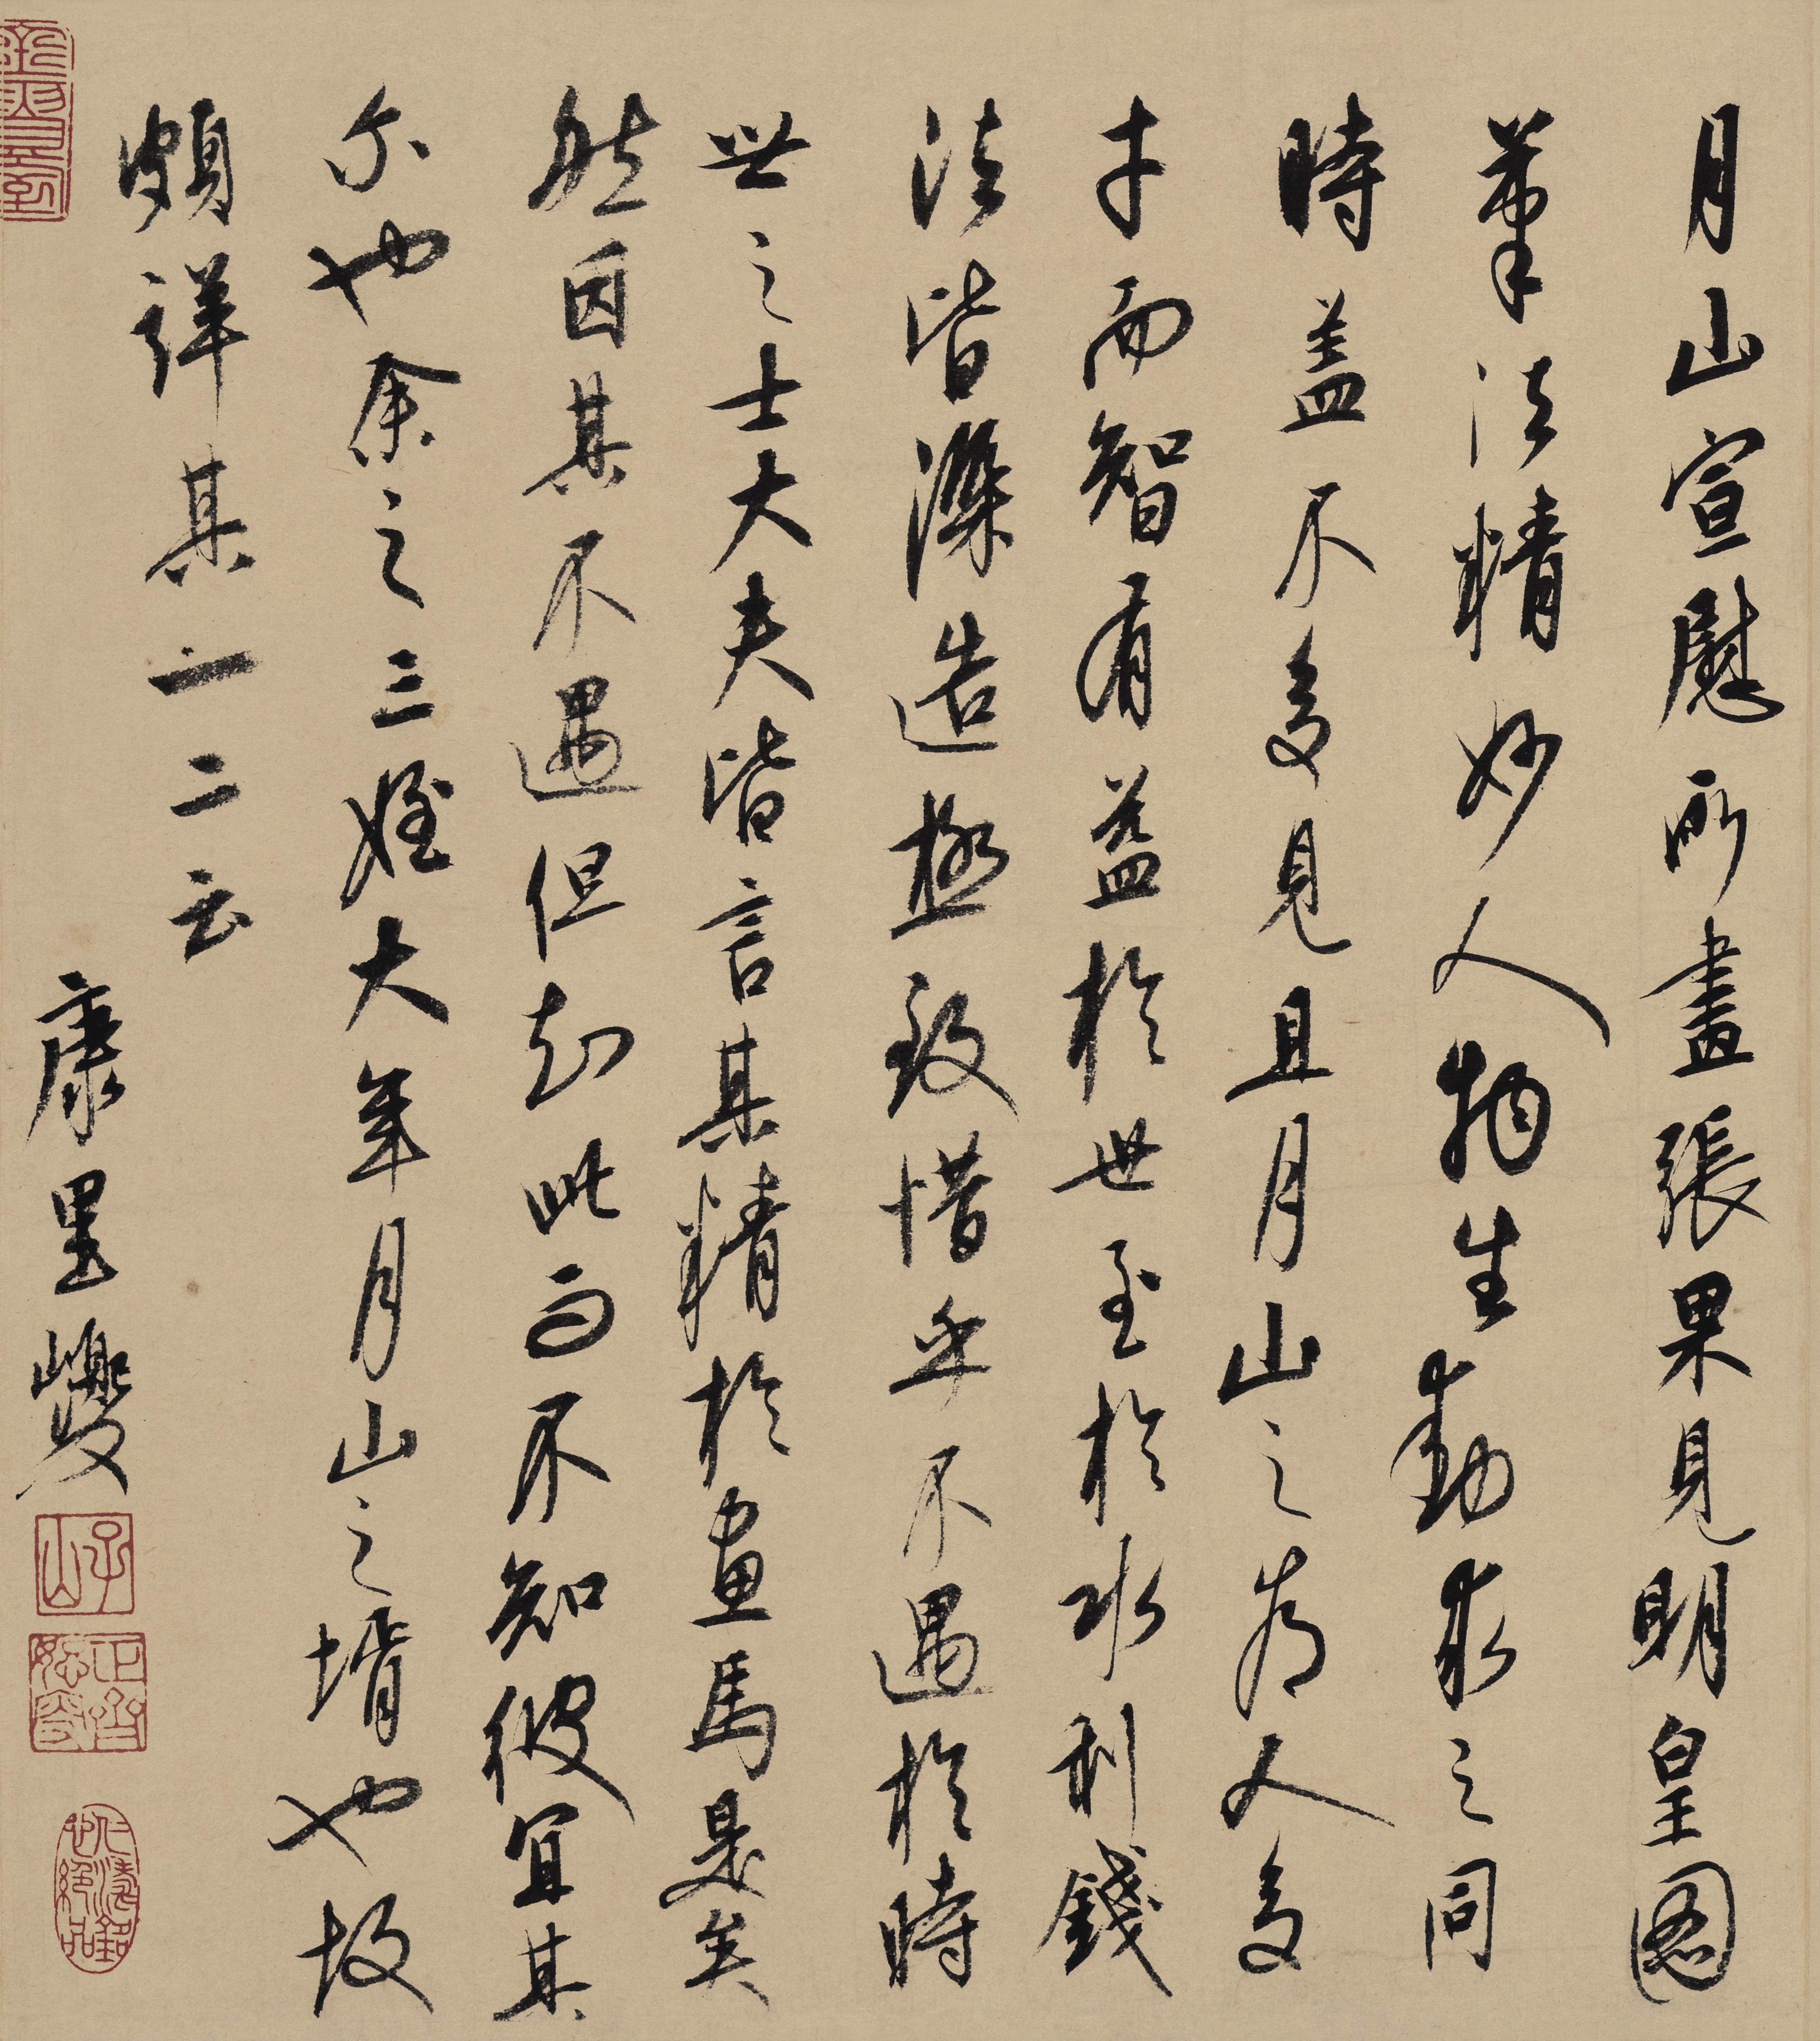 月山宣慰所畫張果見明皇圖
筆法精妙人物生動求之同
時盖不多見且月山之為人多
才而智有益於世至於水利錢
法皆深造極致惜乎不遇於時
世之士大夫皆言其精於畫馬是矣
然因其不遇但知此而不知彼宜其
尔也余之三姪大年月山之壻也故
頗詳其一二云
康里巎
子山
正齋恕叟